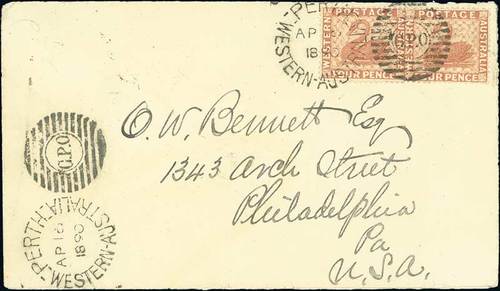 PERTH
AP
1890
WESTERN-AUSTRALIA
POSTAGE POSTAGE
WESTERN AUSTRALIA
FOUR PENCE FOUR PENCE
G.P.O
O. W. Bennett Esq
1343 Arch Street
Philadelphia
Pa
U.S.A.
G.P.O
PERTH
AP 16
1890
WESTERN-AUSTRALIA